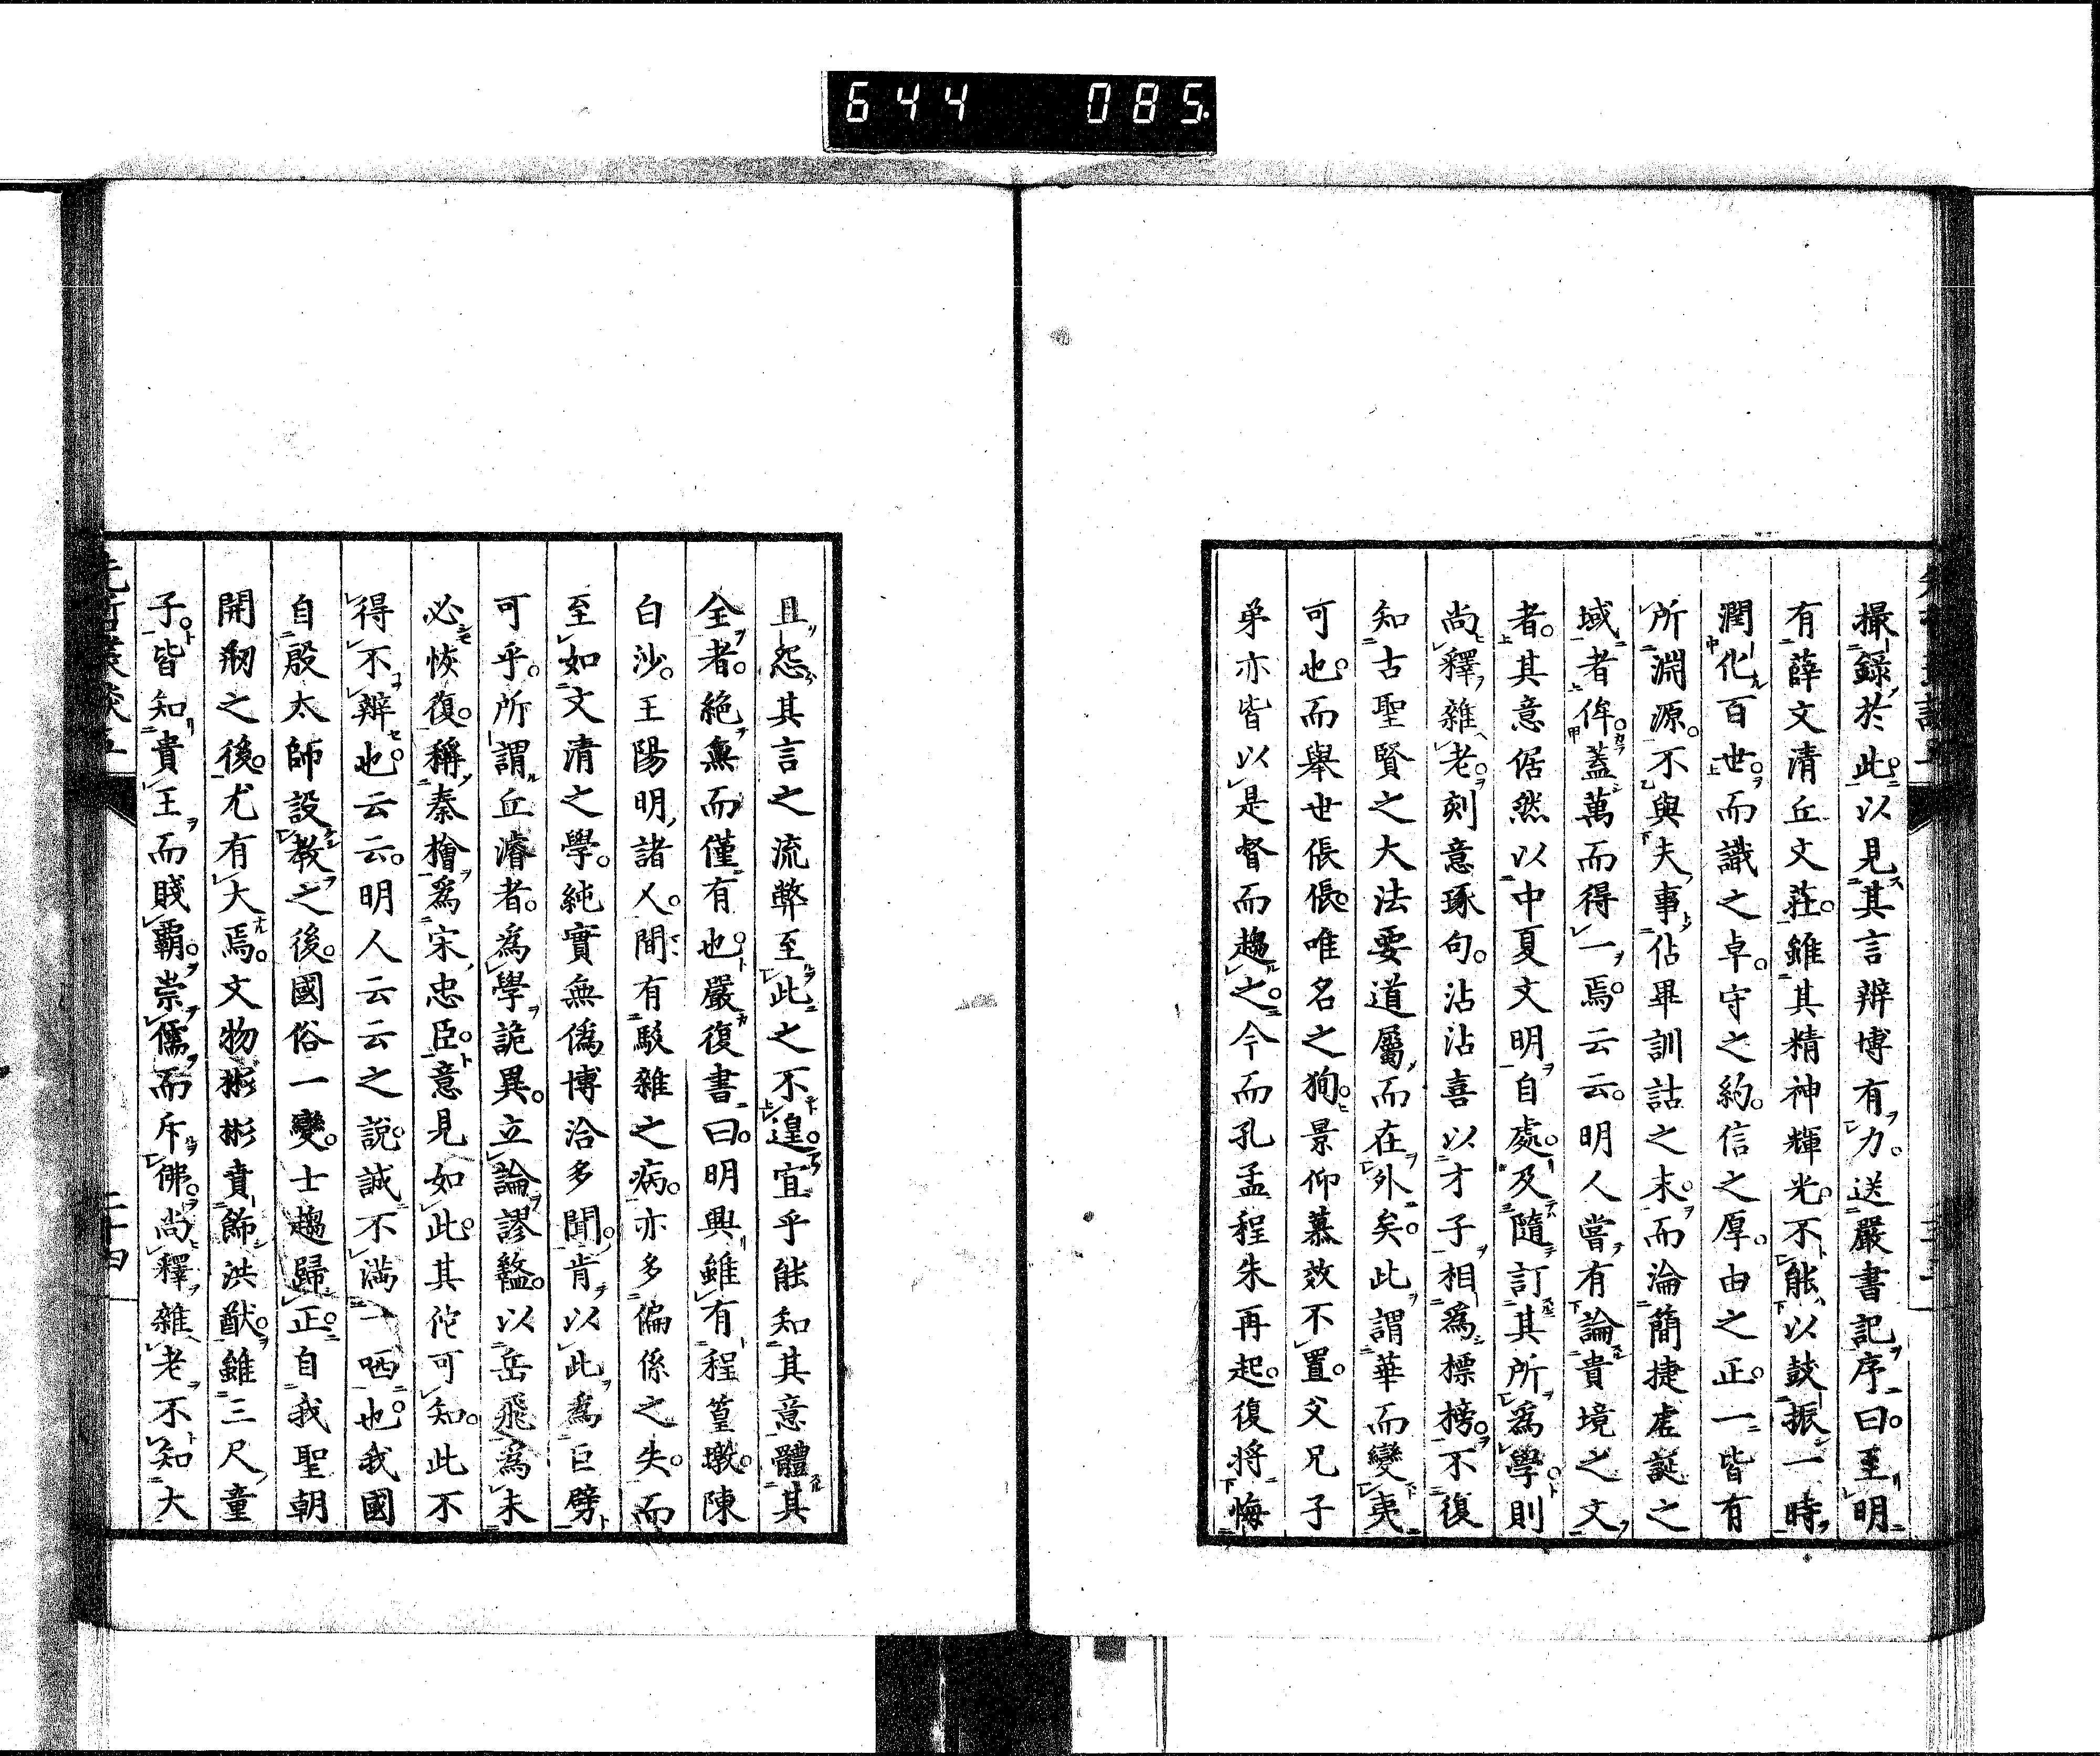 644 085
撮録於此以見其言辨博有力送嚴書記序曰至明
有薛文清丘文莊雖其精神輝光不能以鼓振一時
潤化百世而識之卓守之約信之厚由之正一皆有
所淵源不與夫事佔畢訓詁之末而淪簡捷虚誕之
域者侔蓋萬而得一焉云云明人嘗有論貴境之文
者其意倨然以中夏文明自處及隨訂其所爲學則
尚釋雜老刻意琢句沾沾喜以才子相爲標榜不復
知古聖賢之大法要道屬而在外矣此謂華而變夷
可也而舉世倀倀唯名之狥景仰慕效不置父兄子
弟亦皆以是督而趨之今而孔孟程朱再起復將悔
且怨其言之流弊至此之不遑宜乎能知其意體其
全者絶無而僅有也嚴復書曰明興雖有程篁墩陳
白沙王陽明諸人間有駁雜之病亦多偏係之失而
至如文清之學純實無僞博洽多聞肯以此爲巨擘
可乎所謂丘濬者爲學詭異立論謬盭以岳飛爲未
必恢復稱秦檜爲宋忠臣意見如此其佗可知此不
得不辨也云云明人云云之說誠不滿一哂也我國
自殷太師設教之後國俗一變士趨歸正自我聖朝
開剏之後尤有大焉文物彬彬賁飾洪猷雖三尺童
子皆知貴王而賤霸崇儒而斥佛尚釋雜老不知大